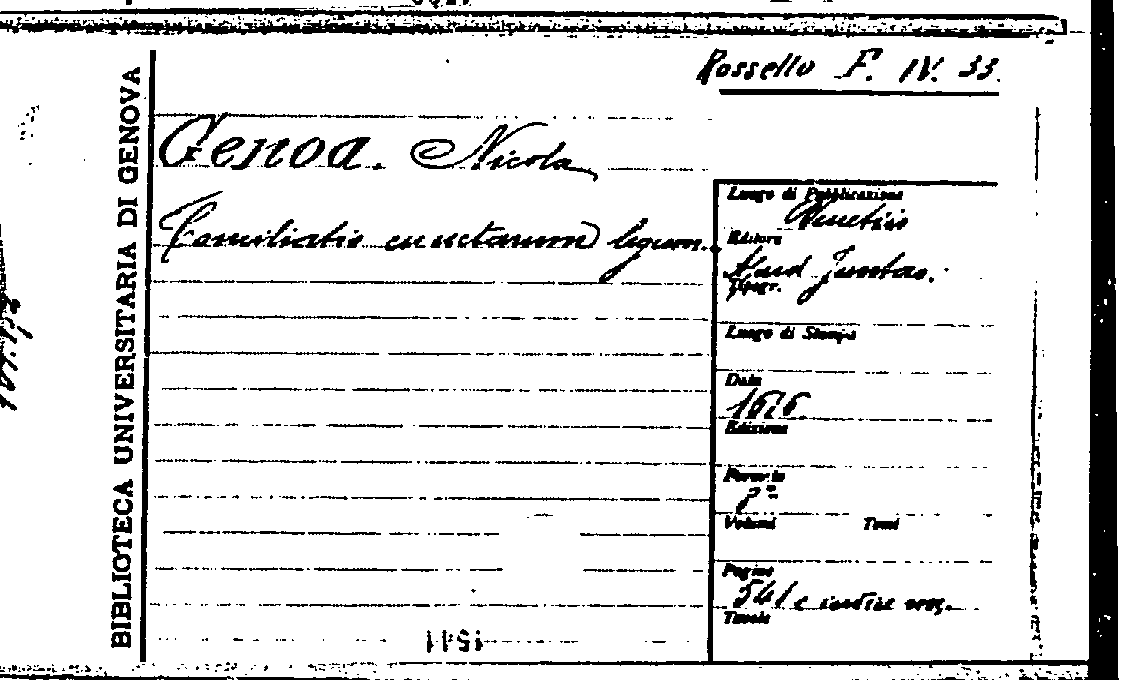 Rossello F. IV. 33.
BIBLIOTECA UNIVERSITARIA DI GENOVA
Genoa. Nicola
Conciliatio cunctarum legum.
Luogo di Pubblicazione
Venetiis
Editore
Apud Juntas.
Tipogr.
Luogo di Stampa
Data
1616.
Edizione
Formato
Volumi Tomi
Pagine
541 e indice
Tavole